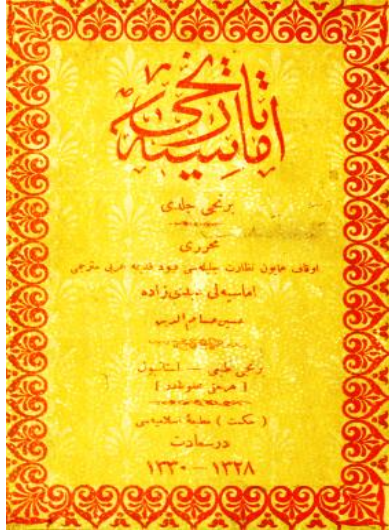 اماسیه تاریخی
برنجی جلدی
محرری
اوقاف همایون نظارت جلیله‌سی قیود قدیمه عربی مترجمی
اماسیه‌لی زاده
حسین حسام الدین
برنجی طبعی — استانبول
( حکمت ) مطبعهٔ اسلامیه‌سی
درسعادت
۱۳۲۸ — ۱۳۳۰